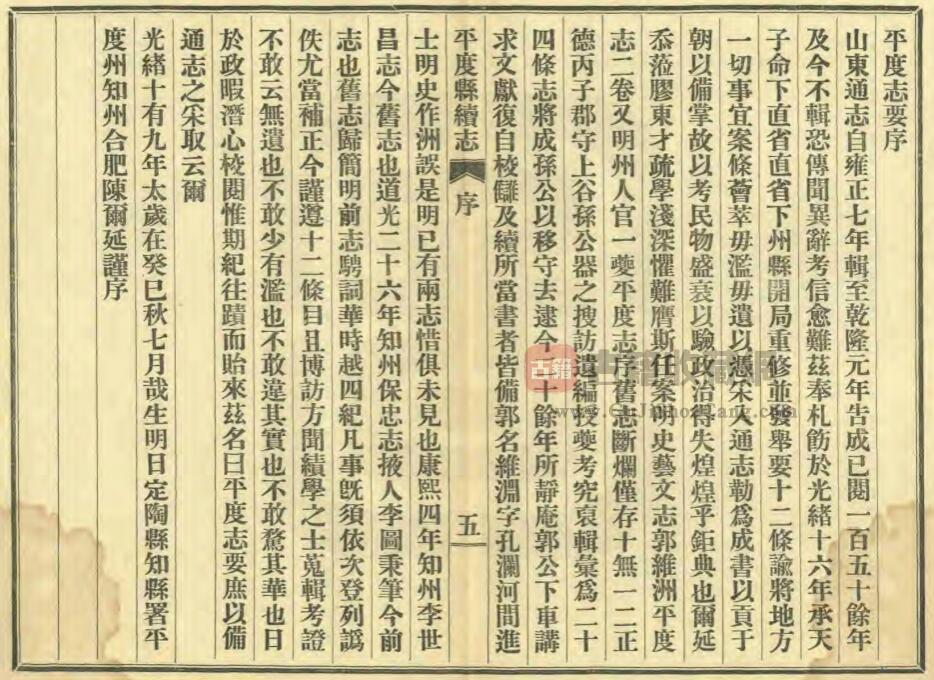 平度志要序
山東通志自雍正七年輯至乾隆元年告成已閱一百五十餘年
及今不輯恐傳聞異辭考信愈難茲奉札飭於光緒十六年承天
子命下直省直省下州縣開局重修並發舉要十二條諭將地方
一切事宜案條薈萃毋濫毋遺以憑采入通志勒爲成書以貢于
朝以備掌故以考民物盛衰以驗政治得失煌煌乎鉅典也爾延
忝蒞膠東才疏學淺深懼難膺斯任案明史藝文志郭維洲平度
志二卷又明州人官一夔平度志序舊志斷爛僅存十無一二正
德丙子郡守上谷孫公器之搜訪遺編授夔考究裒輯彙爲二十
四條志將成孫公以移守去逮今二十餘年所靜庵郭公下車講
求文獻復自校讎及續所當書者皆備郭名維淵字孔瀾河間進
平度縣續志 序 五
士明史作洲誤是明已有兩志惜俱未見也康熙四年知州李世
昌志今舊志也道光二十六年知州保忠志掖人李圖秉筆今前
志也舊志歸簡明前志騁詞華時越四紀凡事旣須依次登列譌
佚尤當補正今謹遵十二條目且博訪方聞績學之士蒐輯考證
不敢云無遺也不敢少有濫也不敢違其實也不敢騖其華也日
於政暇潛心校閱惟期紀往蹟而貽來茲名曰平度志要庶以備
通志之采取云爾
光緒十有九年太歲在癸巳秋七月哉生明日定陶縣知縣署平
度州知州合肥陳爾延謹序
古籍
www.GuJiShouCang.com